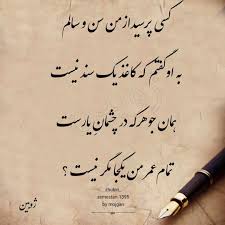 کسی پرسید از من سن و سالم
به او گفتم که کاغذ یک سند نیست
همان جوهر که در چشمان یارست
تمام عمر من یکجا مگر نیست ؟
zhubin_
zemestan 1395
by mojgan
ژوبین